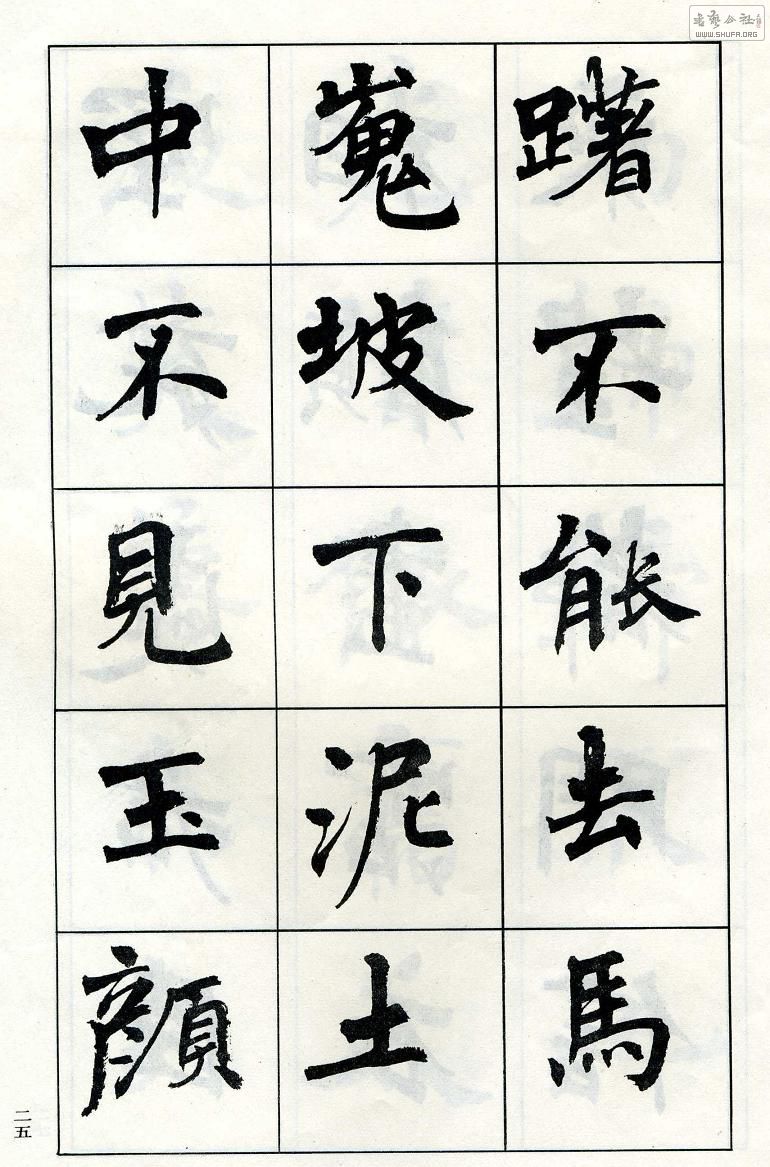 躇不能去馬
嵬坡下泥土
中不見玉顔
二五
书艺公社
WWW.SHUFA.ORG